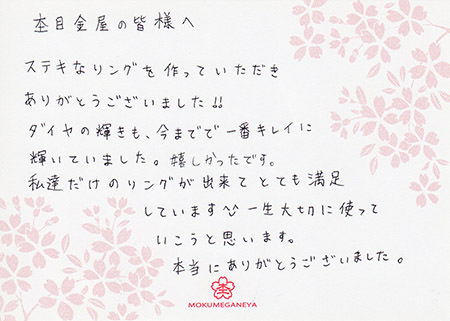 杢目金屋の皆様へ
ステキなリングを作っていただき
ありがとうございました!!
ダイヤの輝きも、今までで一番キレイに
輝いていました。嬉しかったです。
私達だけのリングが出来てとても満足
しています^^ 一生大切に使って
いこうと思います。
本当にありがとうございました。
MOKUMEGANEYA